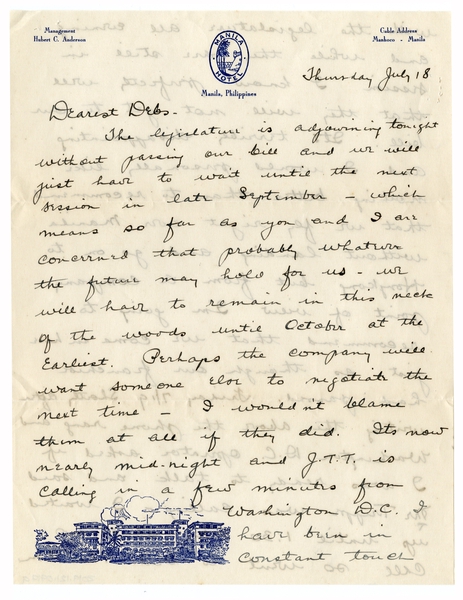 Management
Hubert C. Anderson
MANILA
HOTEL
Cable Address
Manhoco - Manila
Manila, Philippines
Thursday July 18
Dearest Debs-
The legislature is adjourning tonight
without passing our bill and we will
just have to wait until the next
session in late September - which
means so far as you and I are
concerned that probably whatever
the future may hold for us - we
will have to remain in this neck
of the woods until October at the
Earliest. Perhaps the company will
want someone else to negotiate the
next time - I wouldn't blame
them at all if they did. Its now
nearly mid-night and J.T.T. is
calling in a few minutes from
Washington D.C. I
have been in
constant touch